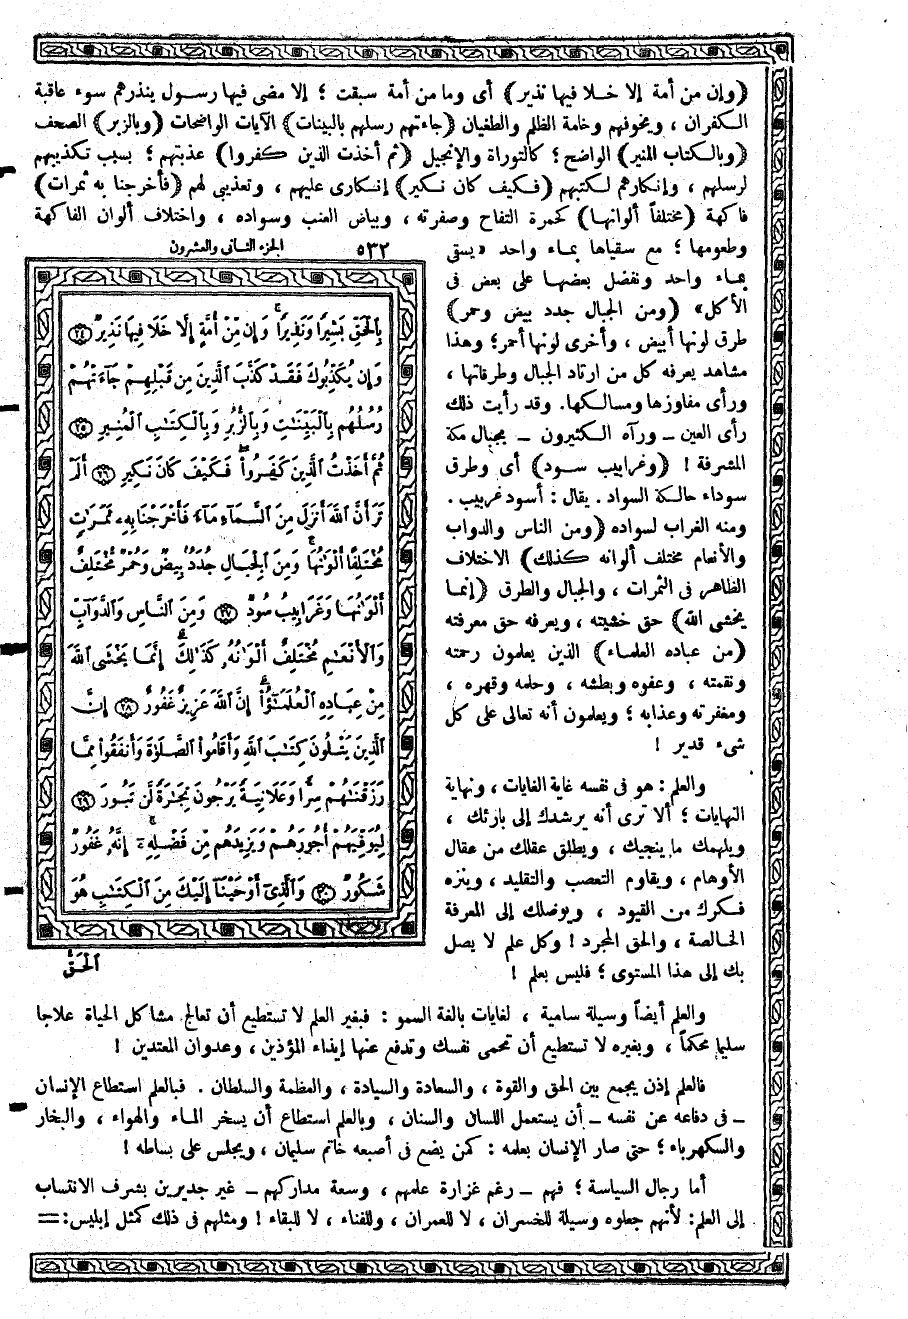 (وإن من أمة إلا خلا فيها نذير) أى وما من أمة سبقت ؛ إلا مضى فيها رسول ينذرهم سوء عاقبة
الكفران ، ويخوفهم وخامة الظلم والطغيان (جاءتهم رسلهم بالبينات) الآيات الواضحات (وبالزبر) الصحف
(وبالكتاب المنير) الواضح ؛ كالتوراة والإنجيل (ثم أخذت الذين كفروا) عذبتهم ؛ بسبب تكذيبهم
لرسلهم ، وإنكارهم لكتبهم (فكيف كان نكير) إنكارى عليهم ، وتعذيبى لهم (فأخرجنا به ثمرات)
فاكهة (مختلفاً ألوانها) كحمرة التفاح وصفرته ، وبياض العنب وسواده ، واختلاف ألوان الفاكهة
وطعومها ؛ مع سقياها بماء واحد «يسقى
بماء واحد ونفضل بعضها على بعض فى
الأكل» (ومن الجبال جدد بيض وحمر)
طرق لونها أبيض ، وأخرى لونها أحمر ؛ وهذا
مشاهد يعرفه كل من ارتاد الجبال وطرقاتها ،
ورأى مفاوزها ومسالكها. وقد رأيت ذلك
رأى العين – ورآه الكثيرون – بجبال مكة
المشرفة ! (وغرابيب سود) أى وطرق
سوداء حالكة السواد . يقال : أسود غربيب .
ومنه الغراب لسواده (ومن الناس والدواب
والأنعام مختلف ألوانه كذلك) الاختلاف
الظاهر فى الثمرات ، والجبال والطرق (إنما
يخشى الله) حق خشيته ، ويعرفه حق معرفته
(من عباده العلماء) الذين يعلمون رحمته
ونقمته ، وعفوه وبطشه ، وحلمه وقهره ،
ومغفرته وعذابه ؛ ويعلمون أنه تعالى على كل
شىء قدير !
والعلم : هو فى نفسه غاية الغايات ، ونهاية
النهايات ؛ ألا ترى أنه يرشدك إلى بارئك ،
ويلهمك ما ينجيك ، ويطلق عقلك من عقال
الأوهام ، ويقاوم التعصب والتقليد ، وينزه
فكرك من القيود ، ويوصلك إلى المعرفة
الخالصة ، والحق المجرد ! وكل علم لا يصل
بك إلى هذا المستوى ؛ فليس بعلم !
٥٣٢ الجزء الثانى والعشرون
بِٱلْحَقِّ بَشِيرًا وَنَذِيرًا ۚ وَإِن مِّنْ أُمَّةٍ إِلَّا خَلَا فِيهَا نَذِيرٌ ﴿٢٤﴾
وَإِن يُكَذِّبُوكَ فَقَدْ كَذَّبَ ٱلَّذِينَ مِن قَبْلِهِمْ جَآءَتْهُمْ
رُسُلُهُم بِٱلْبَيِّنَـٰتِ وَبِٱلزُّبُرِ وَبِٱلْكِتَـٰبِ ٱلْمُنِيرِ ﴿٢٥﴾
ثُمَّ أَخَذْتُ ٱلَّذِينَ كَفَرُوا۟ ۖ فَكَيْفَ كَانَ نَكِيرِ ﴿٢٦﴾ أَلَمْ
تَرَ أَنَّ ٱللَّهَ أَنزَلَ مِنَ ٱلسَّمَآءِ مَآءً فَأَخْرَجْنَا بِهِۦ ثَمَرَٰتٍ
مُّخْتَلِفًا أَلْوَٰنُهَا ۚ وَمِنَ ٱلْجِبَالِ جُدَدٌۢ بِيضٌ وَحُمْرٌ مُّخْتَلِفٌ
أَلْوَٰنُهَا وَغَرَابِيبُ سُودٌ ﴿٢٧﴾ وَمِنَ ٱلنَّاسِ وَٱلدَّوَآبِّ
وَٱلْأَنْعَـٰمِ مُخْتَلِفٌ أَلْوَٰنُهُۥ كَذَٰلِكَ ۗ إِنَّمَا يَخْشَى ٱللَّهَ
مِنْ عِبَادِهِ ٱلْعُلَمَـٰٓؤُا۟ ۗ إِنَّ ٱللَّهَ عَزِيزٌ غَفُورٌ ﴿٢٨﴾ إِنَّ
ٱلَّذِينَ يَتْلُونَ كِتَـٰبَ ٱللَّهِ وَأَقَامُوا۟ ٱلصَّلَوٰةَ وَأَنفَقُوا۟ مِمَّا
رَزَقْنَـٰهُمْ سِرًّا وَعَلَانِيَةً يَرْجُونَ تِجَـٰرَةً لَّن تَبُورَ ﴿٢٩﴾
لِيُوَفِّيَهُمْ أُجُورَهُمْ وَيَزِيدَهُم مِّن فَضْلِهِۦٓ ۚ إِنَّهُۥ غَفُورٌ
شَكُورٌ ﴿٣٠﴾ وَٱلَّذِىٓ أَوْحَيْنَآ إِلَيْكَ مِنَ ٱلْكِتَـٰبِ هُوَ
ٱلْحَقُّ
والعلم أيضاً وسيلة سامية ، لغايات بالغة السمو : فبغير العلم لا تستطيع أن تعالج مشاكل الحياة علاجا
سليما محكماً ، وبغيره لا تستطيع أن تحمى نفسك وتدفع عنها إيذاء المؤذين ، وعدوان المعتدين !
فالعلم إذن يجمع بين الحق والقوة ، والسعادة والسيادة ، والعظمة والسلطان . فبالعلم استطاع الإنسان
– فى دفاعه عن نفسه – أن يستعمل اللسان والسنان ، وبالعلم استطاع أن يسخر الماء والهواء ، والبخار
والكهرباء ؛ حتى صار الإنسان بعلمه : كمن يضع فى أصبعه خاتم سليمان ، ويجلس على بساطه !
أما رجال السياسة ؛ فهم – رغم غزارة علمهم ، وسعة مداركهم – غير جديرين بشرف الانتساب
إلى العلم : لأنهم جعلوه وسيلة للخسران ، لا للعمران ، وللفناء ، لا للبقاء ! ومثلهم فى ذلك كمثل إبليس : =